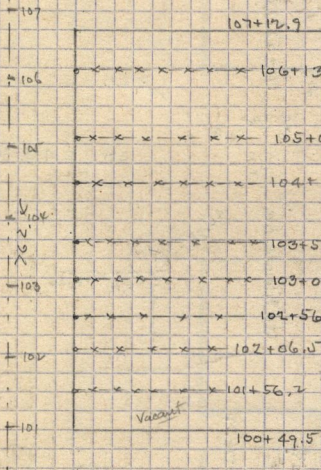 107
107+12.9
106
106+13
105+0
105
104+
104
103+5
103+0
103
102+56
102+06.5
102
101+56.2
Vacant
101
100+49.5